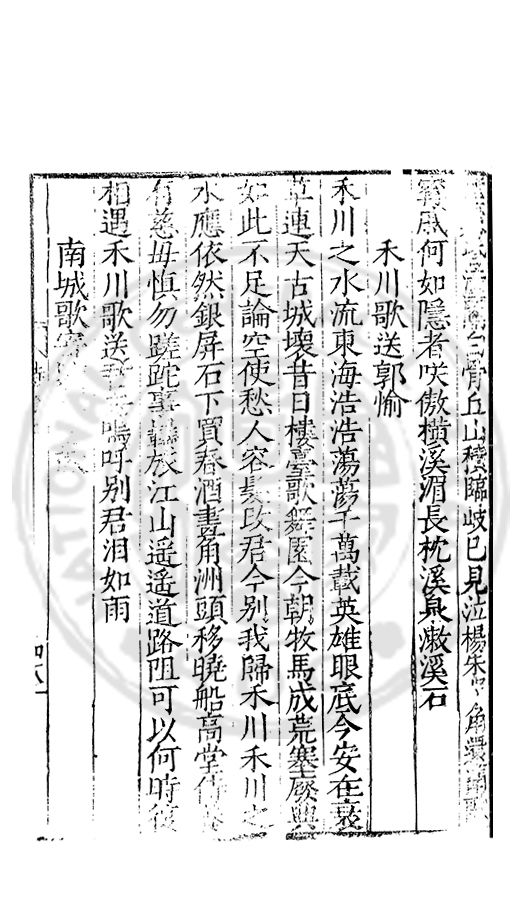 骨丘山積臨岐已見泣楊朱角還
戚何如隱者咲傲橫溪湄長枕溪泉漱溪石
禾川歌送郭愉
禾川之水流東海浩浩蕩蕩千萬載英雄眼底今安在衰
草連天古城壞昔日樓臺歌舞園今朝牧馬成荒塞廢興
如此不足論空使愁人容髮改君今別我歸禾川禾川之
水應依然銀屏石下買春酒畫角洲頭移曉船高堂倚
有慈母慎勿蹉跎事羈旅江山遥遥道路阻可以何時復
相遇禾川歌送嗚呼别君泪如雨
南城歌寄